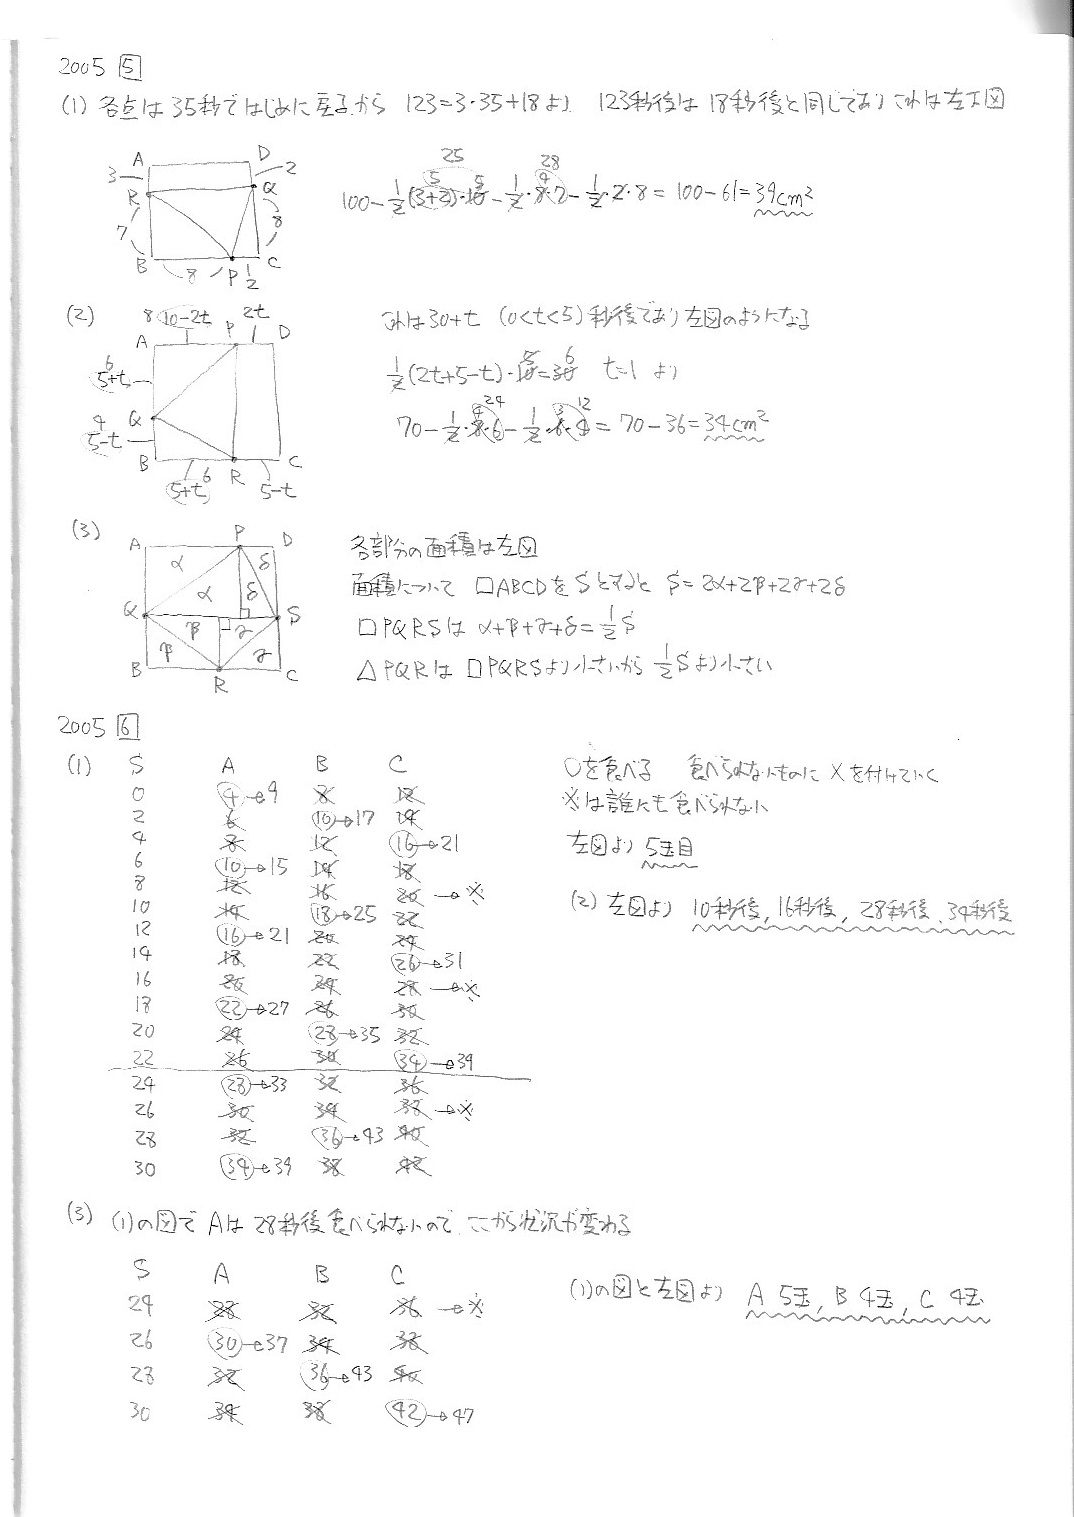 2005 5
(1) 各点は35秒ではじめに戻るから 123=3・35+18より 123秒後は18秒後と同じでありこれは左下図
A D 3 2 R Q 7 8 B 8 P 2 C
25 28
5 5 4
100-1/2(3+2)・10-1/2・8・7-1/2・2・8=100-61=39cm²
(2) 8 10-2t 2t
これは30+t (0<t<5)秒後であり左図のようになる
A P D
6 5+t
1/2(2t+5-t)・10=30 6 t=1 より
4 5-t Q
4 24 3 12
70-1/2・8・6-1/2・6・4=70-36=34cm²
B R C
5+t 6 5-t
(3)
A P D
各部分の面積は左図
α δ
面積について □ABCDをSとすると S=2α+2β+2γ+2δ
α δ
Q S
β γ
□PQRSは α+β+γ+δ=1/2S
β γ
B R C
△PQRは □PQRSより小さいから 1/2Sより小さい
2005 6
(1) S A B C
○を食べる 食べられないものに×を付けていく
0 4→9 8 12
※は誰にも食べられない
2 6 10→17 14
4 8 12 16→21
左図より 5玉目
6 10→15 14 18
8 12 16 20→※
(2) 左図より 10秒後,16秒後,28秒後,34秒後
10 14 18→25 22
12 16→21 20 24
14 18 22 26→31
16 20 24 28→※
18 22→27 26 30
20 24 28→35 32
22 26 30 34→39
24 28→33 32 36
26 30 34 38→※
28 32 36→43 40
30 34→39 38 42
(3) (1)の図でAは28秒後食べられないので、ここから状況が変わる
S A B C
(1)の図と左図より A 5玉, B 4玉, C 4玉
24 28 32 36→※
26 30→37 34 38
28 32 36→43 40
30 34 38 42→47